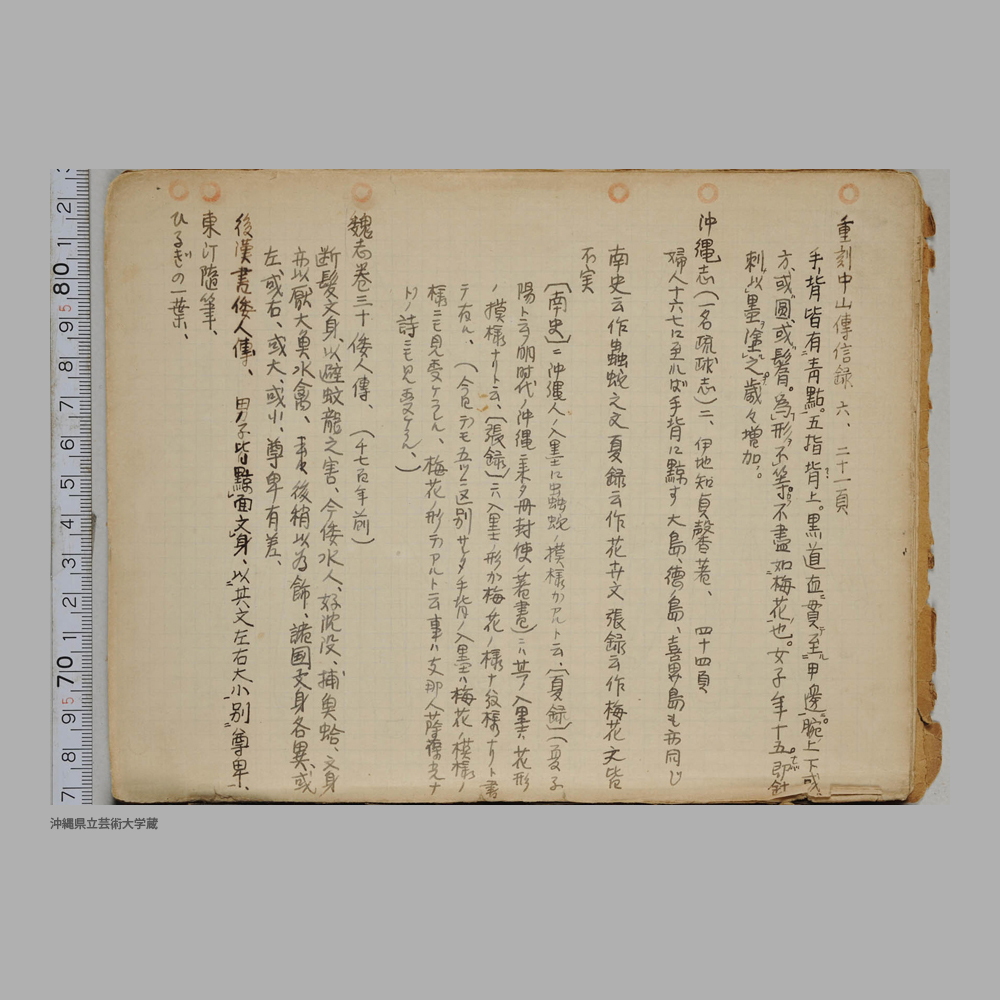 重刻中山傳信録 六、二十一頁
手背皆有青點。五指背上。黒道直貫至甲邊。腕上下或
方或圓或髻脊。為形不等。不盡如梅花也。女子年十五即針
刺以墨塗之歳々増加。
沖縄志(一名琉球志)二、伊地知貞馨著、四十四頁
婦人十六七に至れば手背に黥す大島、徳ノ島、喜界島も亦同じ
南史云作蟲蛇之文 夏録云作花卉文 張録云作梅花文皆
不実
〔南史〕ニ沖縄人ノ入墨に虫蟲蛇ノ模様ガアルト云、〔夏録〕(夏子
陽ト云フ明時代ノ沖縄ニ来タ冊封使ノ著書)ニハ其ノ入墨ハ花形
ノ模様ナリト云、〔張録〕ニハ入墨ノ形が梅花ノ様ナ紋様ナリト書
テ有ル、(今日デモ五ツニ区別サレタ手背ノ入墨ハ梅花ノ模様ノ
様ニモ見受ケラレル、梅花ノ形デアルト云事ハ支那人
ドノ詩ニモ見受ケラル、)
魏志巻三十 倭人傳、(千七百年前)
断髪文身、以避蚊龍之害、今倭水人、好沈没、捕魚蛤、文身
亦以厭大魚水禽、後稍以為飾、諸国文身各異、或
左或右、或大、或小、尊卑有差、
後漢書倭人傳、男子皆黥面文身、以其文左右大小別尊卑、
東汀隨筆、
ひるぎの一葉、
2 1 80 9 8 7 6 5 4 3 2 1 70 9 8 7
沖縄県立芸術大学蔵